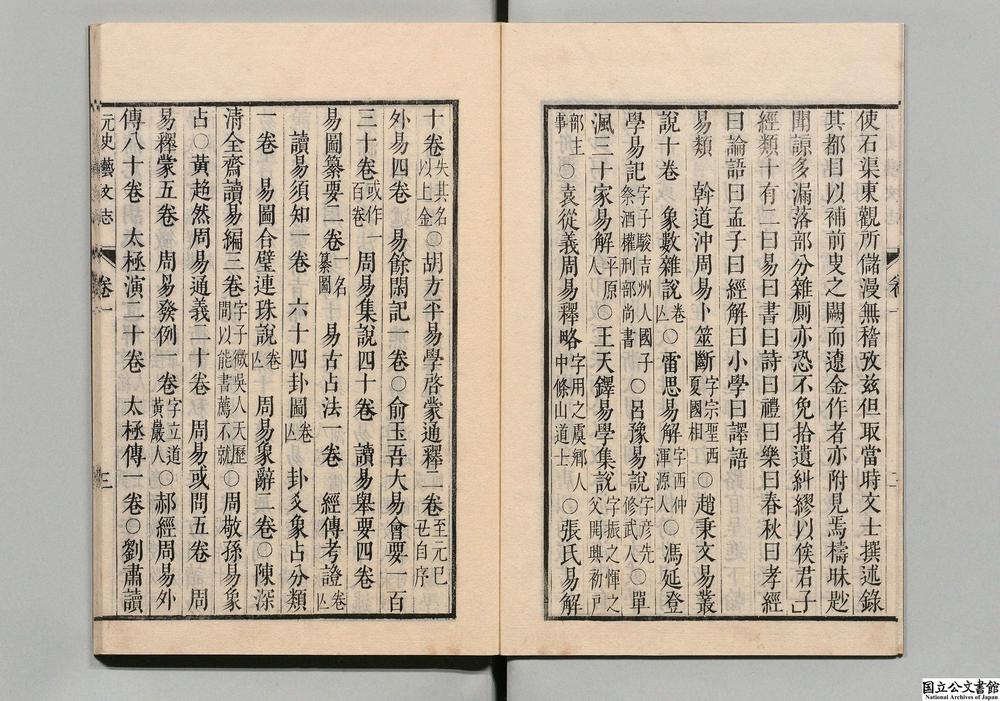 使石渠東觀所儲漫無稽攷兹但取當時文士撰述錄
其都目以補前史之闕而遼金作者亦附見焉檮昧尠
聞諒多漏落部分雜厠亦恐不免拾遺糾繆以俟君子
經類十有二曰易曰書曰詩曰禮曰樂曰春秋曰孝經
曰論語曰孟子曰經解曰小學曰譯語
易類 斡道沖周易卜筮斷字宗聖西夏國相○趙秉文易叢
說十卷 象數雜說卷亡○雷思易解字西仲渾源人○馮延登
學易記字子駿吉州人國子祭酒權刑部尚書○呂豫易說字彦先修武人○單
渢三十家易解平原人○王天鐸易學集說字振之惲之父開興初戸
部主事○袁從義周易釋略字用之虞鄉人中條山道士○張氏易解
十卷失其名以上金○胡方平易學啓蒙通釋二卷至元己丑自序
外易四卷 易餘閑記一卷○俞玉吾大易會要一百
三十卷或作一百卷 周易集說四十卷 讀易舉要四卷
易圖纂要二卷一名纂圖 易古占法一卷 經傳考證卷亡
讀易須知一卷 六十四卦圖卷亡 卦爻象占分類
一卷 易圖合璧連珠說卷亡 周易象辭二卷○陳深
清全齋讀易編三卷字子微吳人天歷間以能書薦不就○周敬孫易象
占○黃趋然周易通義二十卷 周易或問五卷 周
易釋蒙五卷 周易發例一卷字立道黃巖人○郝經周易外
傳八十卷 太極演二十卷 太極傳一卷○劉肅讀
元史藝文志 卷一 三